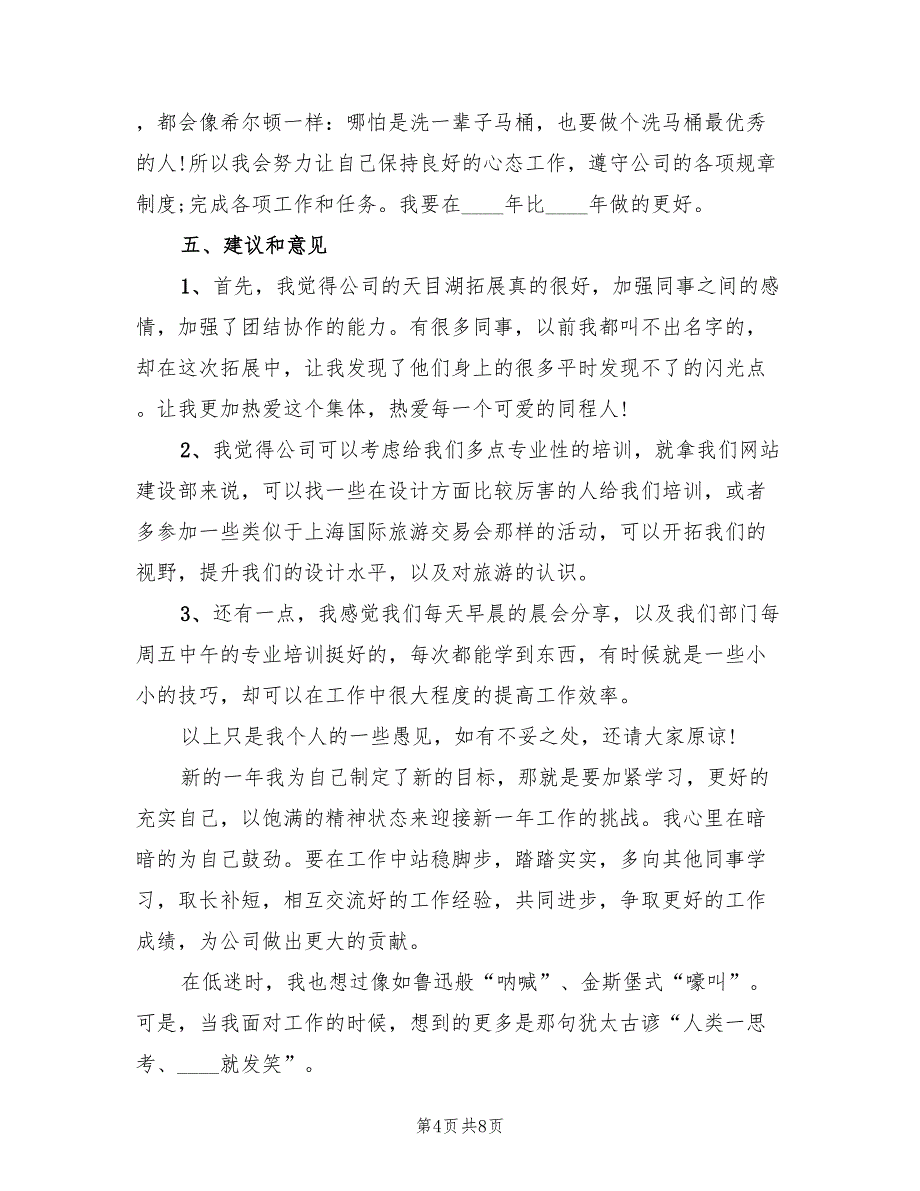 ，都会像希尔顿一样：哪怕是洗一辈子马桶，也要做个洗马桶最优秀
的人!所以我会努力让自己保持良好的心态工作，遵守公司的各项规章
制度;完成各项工作和任务。我要在____年比____年做的更好。
五、建议和意见
1、首先，我觉得公司的天目湖拓展真的很好，加强同事之间的感
情，加强了团结协作的能力。有很多同事，以前我都叫不出名字的，
却在这次拓展中，让我发现了他们身上的很多平时发现不了的闪光点
。让我更加热爱这个集体，热爱每一个可爱的同程人!
2、我觉得公司可以考虑给我们多点专业性的培训，就拿我们网站
建设部来说，可以找一些在设计方面比较厉害的人给我们培训，或者
多参加一些类似于上海国际旅游交易会那样的活动，可以开拓我们的
视野，提升我们的设计水平，以及对旅游的认识。
3、还有一点，我感觉我们每天早晨的晨会分享，以及我们部门每
周五中午的专业培训挺好的，每次都能学到东西，有时候就是一些小
小的技巧，却可以在工作中很大程度的提高工作效率。
以上只是我个人的一些愚见，如有不妥之处，还请大家原谅!
新的一年我为自己制定了新的目标，那就是要加紧学习，更好的
充实自己，以饱满的精神状态来迎接新一年工作的挑战。我心里在暗
暗的为自己鼓劲。要在工作中站稳脚步，踏踏实实，多向其他同事学
习，取长补短，相互交流好的工作经验，共同进步，争取更好的工作
成绩，为公司做出更大的贡献。
在低迷时，我也想过像如鲁迅般“呐喊”、金斯堡式“嚎叫”。
可是，当我面对工作的时候，想到的更多是那句犹太古谚“人类一思
考、____就发笑”。
第4页 共8页